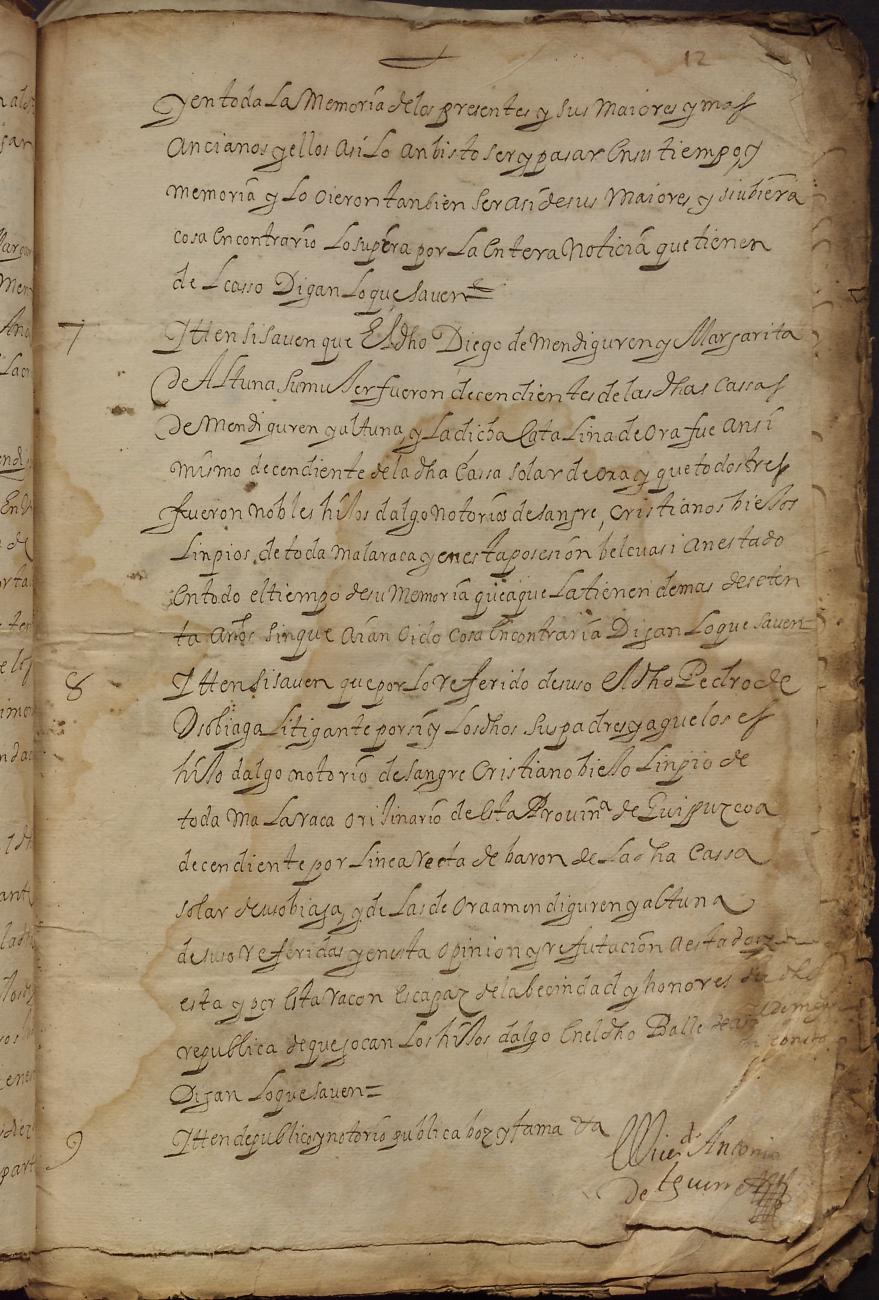 12
y en toda La Memoria de los presentes y sus Maiores y mas
Ancianos y ellos Asi Lo An bisto ser y pasar En su tiempo, y
memoria y Lo oieron tanbien ser asi de sus Maiores y si ubiera
cosa En contrario Lo supiera por La Entera Noticia que tienen
de L casso Digan Lo que saven =
7 Itten si saven que El dho Diego de Mendiguren y Margarita
de Altuna su muJer fueron decendientes de las dhas Cassas
De Mendiguren y altuna, y La dicha CataLina de Ora fue Ansi
mismo decendiente de la dha Cassa solar de ora y que todos tres
fueron nobles hiJos dalgo Notorios de sangre, Cristianos bieJos
Linpios, de toda mala raca y en esta posesion bel cuasi an estado
En todo el tiempo de su Memoria que a que La tienen de mas de seten
ta Años sin que Aian Oido Cosa En contraria Digan Lo que saven =
8 Itten si saven que por Lo referido desuso el dho Pedro de
Usobiaga Litigante por si y Los dhos sus padres y aguelos es
hiJo dalgo notorio de sangre Cristiano bieJo Linpio de
toda Ma La raca oriJinario de Esta Provinª de Guipuzcoa
decendiente por Linea recta de baron de La dha Cassa
solar de usobiaga, y de Las de Ora amendiguren y altuna
desuso referidas y en esta opinion y reputacion a estado y
esta y por Esta racon Es capaz de la becindad y honores de dha
republica de que gocan Los hiJos dalgo En el dho Balle
Digan Lo que saven =
9 Itten de publico y notorio publica boz y fama &a
Llicdo Antonio
de